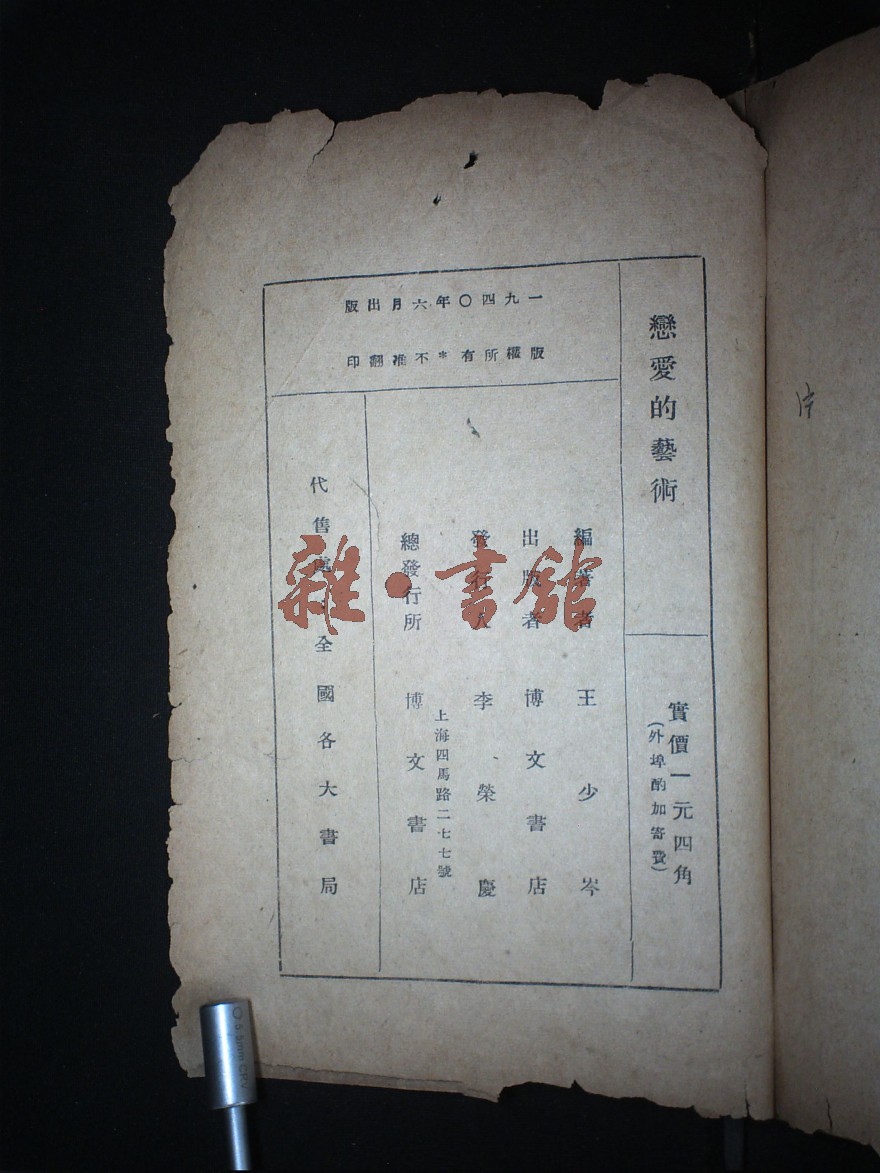 戀愛的藝術
實價一元四角
(外埠酌加寄費)
一九四〇年六月出版
版權所有*不准翻印
編著者 王少岑
出版者 博文書店
發行人 李榮慶
上海四馬路二七七號
總發行所 博文書店
代售處 全國各大書局
雜·書館
0.5mm CRV